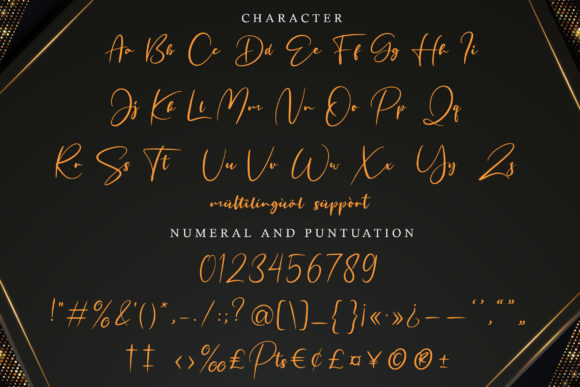 CHARACTER
Aa Bb Cc Dd Ee Ff Gg Hh Ii
Jj Kk Ll Mm Nn Oo Pp Qq
Rr Ss Tt Uu Vv Ww Xx Yy Zz
mültilingùal süppòrt
NUMERAL AND PUNTUATION
0123456789
!"#%&'()*,-./:;?@[\]_{}¡«·»¿–—‘’‚“”„
†‡‹›‰£Pts€¢£¤¥©®±